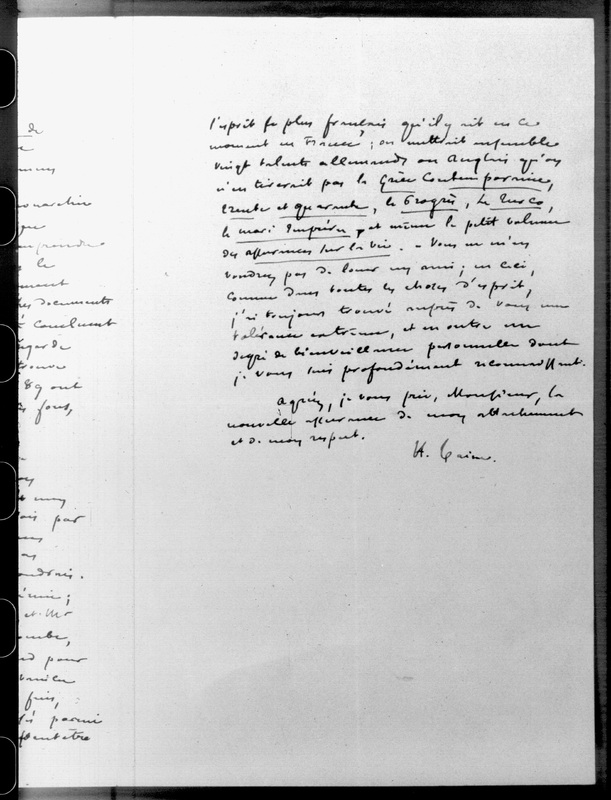 de
le
ment
les documents
concluent
regarde
trouve
89 ont
font,
par
et Mr
pour
fois,
parmi
peut être
l'esprit le plus français qu'il y ait en ce
moment en France ; on mettrait ensemble
vingt talents allemands ou anglais qu'on
n'en tirerait pas la Grèce Contemporaine,
trente et quarante, le Progrès, le Turco,
le mari imprévu, et même le petit volume
des assurances sur la vie. - Vous ne m'en
voudrez pas de louer un ami ; en ceci,
comme dans toutes les choses d'esprit,
j'ai toujours trouvé auprès de vous une
tolérance extrême, et en outre un
degré de bienveillance personnelle dont
je vous suis profondément reconnaissant.
Agréez, je vous prie, Monsieur, la
nouvelle assurance de mon attachement
et de mon respect.
H. Taine.